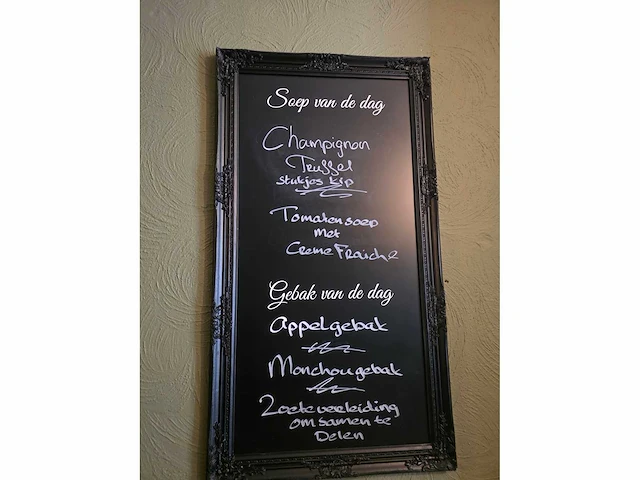 Soep van de dag
Champignon
Truffel
stukjes kip
Tomatensoep
met
Creme Fraiche
Gebak van de dag
Appelgebak
Monchougebak
Zoete verleiding
om samen te
Delen